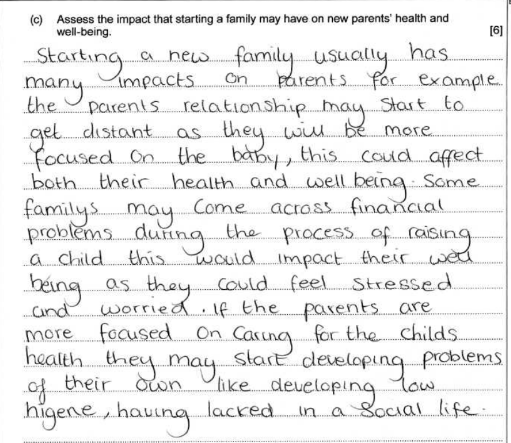 (c) Assess the impact that starting a family may have on new parents' health and
well-being.
[6]
Starting a new family usually has
many impacts on parents for example
the parents relationship may start to
get distant as they will be more
focused on the baby, this could affect
both their health and well being. Some
familys may come across financial
problems during the process of raising
a child this would impact their well
being as they could feel stressed
and worried. If the parents are
more focused on caring for the childs
health they may start developing problems
of their own like developing low
higene, having lacked in a social life.